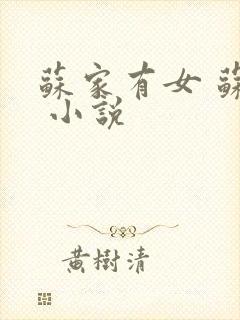 蘇家有女 蘇
小說
黃樹清